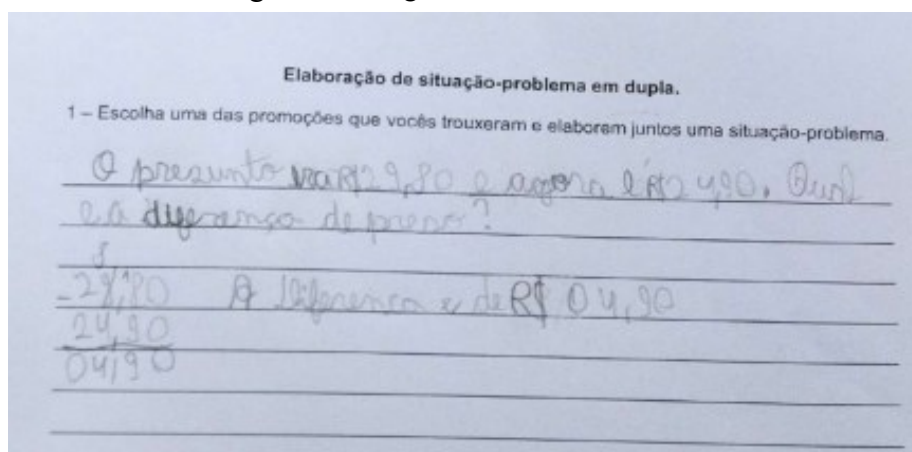 Elaboração de situação-problema em dupla.
1 – Escolha uma das promoções que vocês trouxeram e elaborem juntos uma situação-problema.
O presunto era R$29,80 e agora é R$24,90. Qual
e a diferença de preso?
8
-29,180 A Diferenca e de R$ 04,90
24,90
04,90